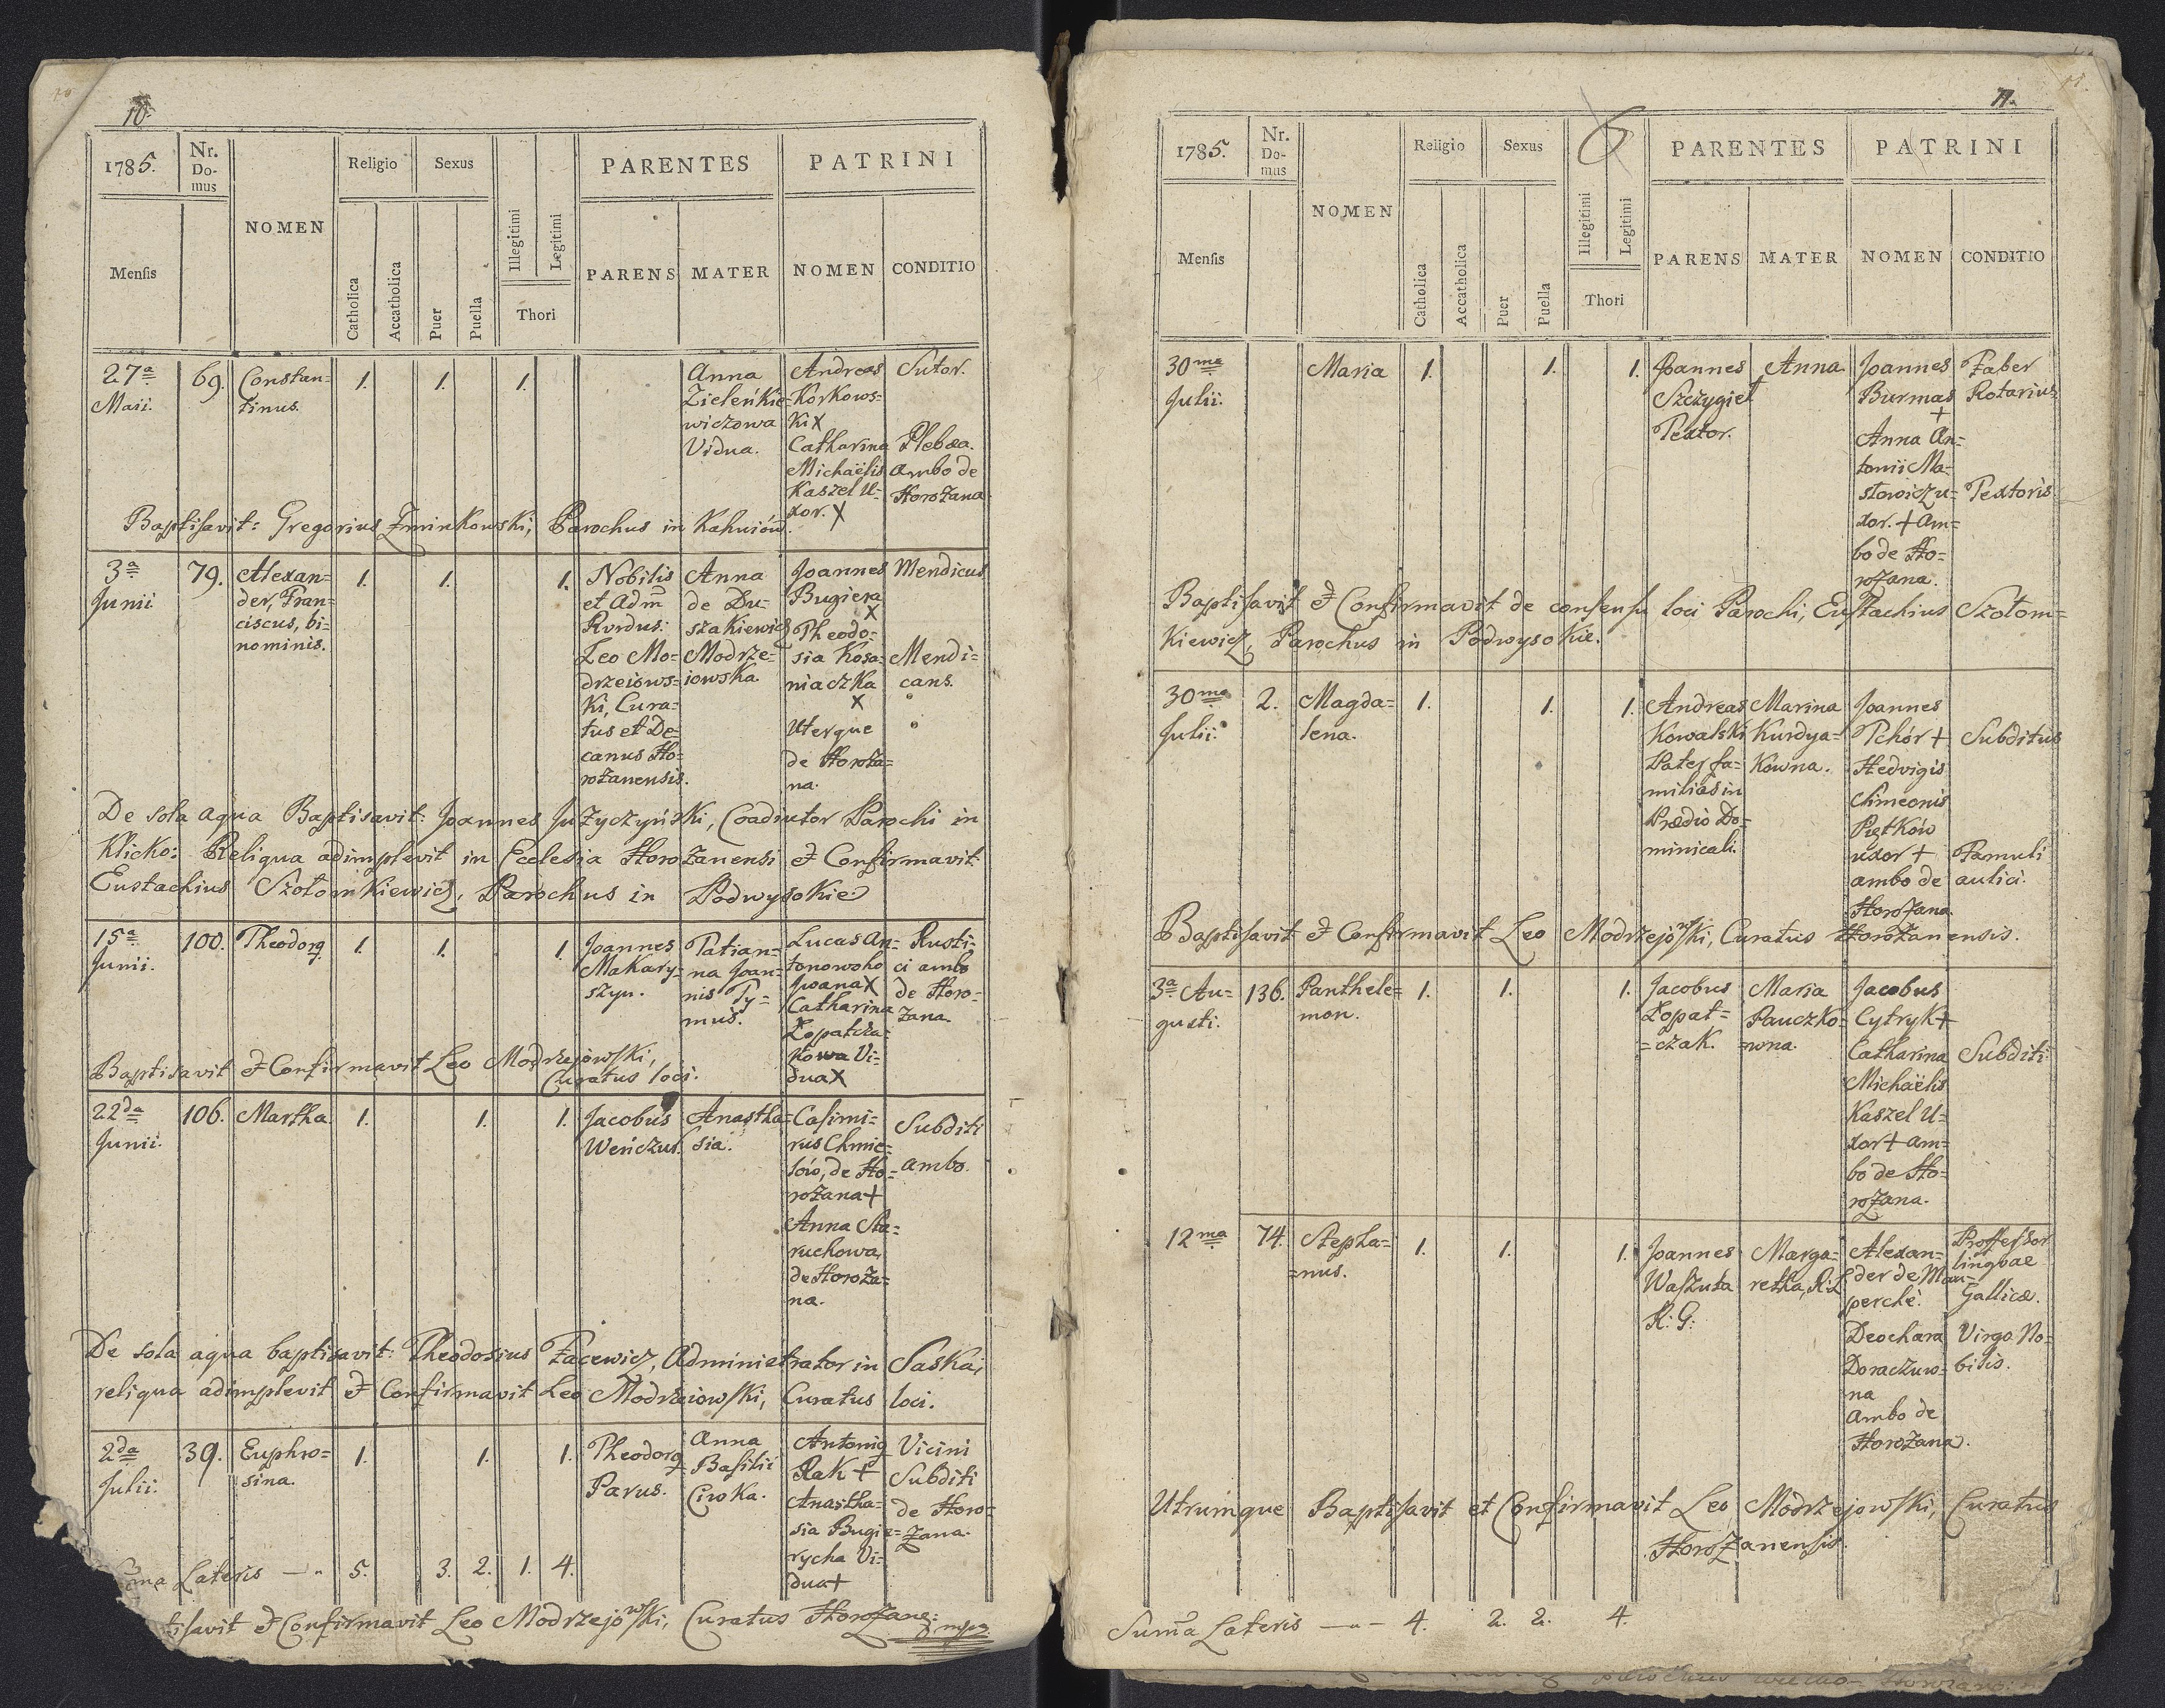 10.
1785.
Nr.
Do-
mus
NOMEN
Religio
Sexus
PARENTES
PATRINI
Mensis
Catholica
Accatholica
Puer
Puella
Illegitimi
Legitimi
Thori
PARENS
MATER
NOMEN
CONDITIO
27a Maii.
69.
Constan=
tinus.
1. 1. 1.
Anna
Zieleńkie=
wiczowa
Vidua.
Andreas
Korkows=
ki X
Catharina
Michaëlis
Kaszel U=
xor. X
Sutor.
Plebæa.
Ambo de
Horożana
Baptisavit: Gregorius Żminkowski, Parochus in Kahuiów.
3a Junii
79.
Alexan=
der, Fran=
ciscus, bi=
nominis.
1. 1. 1.
Nobilis
et Adm̃
Rvrdus:
Leo Mo=
drzeiows=
ki, Cura=
tus et De=
canus Ho=
rożanensis.
Anna
de Du=
szakiewicz
Modrze=
iowska
Joannes
Bugiera
X
Theodo=
sia Kosa=
niaczka
X
Uterque
de Horoża=
na.
Mendicus
Mendi=
cans.
De sola aqua Baptisavit: Joannes Juzyczyński, Coadiutor Parochi in
Klicko: Reliqua adimplevit in Ecclesia Horożanensi et Confirmavit
Eustachius Szołomkiewicz, Parochus in Podwysokie
15a Junii.
100.
Theodorq
1. 1. 1.
Joannes
Makary=
szyn.
Tatian=
na Joan=
nis Ty=
mus.
Lucas An=
tonowoho
Iwana X
Catharina
Łopatcza=
kowa Vi=
dua X
Rusti=
ci ambo
de Horo=
żana.
Baptisavit et Confirmavit Leo Modrzejowski,
Curatus loci.
22da Junii.
106.
Martha.
1. 1. 1.
Jacobus
Weńczus.
Anastha=
sia.
Casimi=
rus Chmie=
lów, de Ho=
rożana +
Anna Sta=
ruchowa,
de Horoża=
na.
Subditi
ambo.
De sola aqua baptisavit: Theodosius Łacewicz, Administrator in Saska;
reliqua adimplevit et Confirmavit Leo Modrzeiowski, Curatus loci.
2da Julii.
39.
Euphro=
sina.
1. 1. 1.
Theodorq
Parus.
Anna
Basilii
Ciwka.
Antoniq
Rak +
Anastha=
sia Bugie=
rycha Vi=
dua +
Vicini
Subditi
de Horo=
żana.
ma Lateris 5. 3. 2. 1. 4.
tisavit et Confirmavit Leo Modrzejowski, Curatus Horożane: mpp
11.
1785.
Nr.
Do-
mus
NOMEN
Religio
Sexus
6
PARENTES
PATRINI
Mensis
Catholica
Accatholica
Puer
Puella
Illegitimi
Legitimi
Thori
PARENS
MATER
NOMEN
CONDITIO
30ma Julii.
Maria
1. 1. 1.
Joannes
Szczygieł
Textor.
Anna
Joannes
Burmas
+
Anna An=
tonii Ma=
słowicz u=
xor. + Am=
bo de Ho=
rożana.
Faber
Rotarius
Textoris
Baptisavit et Confirmavit de consensu loci Parochi, Eustachius Szołom=
kiewicz, Parochus in Podwysokie.
30ma Julii.
2.
Magda=
lena.
1. 1. 1.
Andreas
Kowalski
Pater fa=
milias in
Prædio Do=
minicali.
Marina
Kurdya=
kowna.
Joannes
Tchór +
Hedvigis
Simeonis
Piętków
uxor +
ambo de
Horożana.
Subditus
Famuli
aulici.
Baptisavit et Confirmavit Leo Modrzejowski, Curatus Horożanensis.
3a Au=
gusti.
136.
Panthele=
mon.
1. 1. 1.
Jacobus
Łopat=
=czak.
Maria
Pauczko=
=wna.
Jacobus
Cytryk +
Catharina
Michaëlis
Kaszel U=
xor + am=
bo de Ho=
rożana.
Subditi
12ma
74.
Stepha=
=nus.
1. 1. 1.
Joannes
Waszuta
R: G:
Marga=
retha, R:L
Alexan=
der de Mau=
perché.
Deochara
Doraczuw=
na
Ambo de
Horożana.
Professor
lingvae
Gallicæ.
Virgo No=
bilis.
Utrumque Baptisavit et Confirmavit Leo Modrzejowski, Curatus
Horożanensis.
Sum̃a Lateris 4. 2. 2. 4.